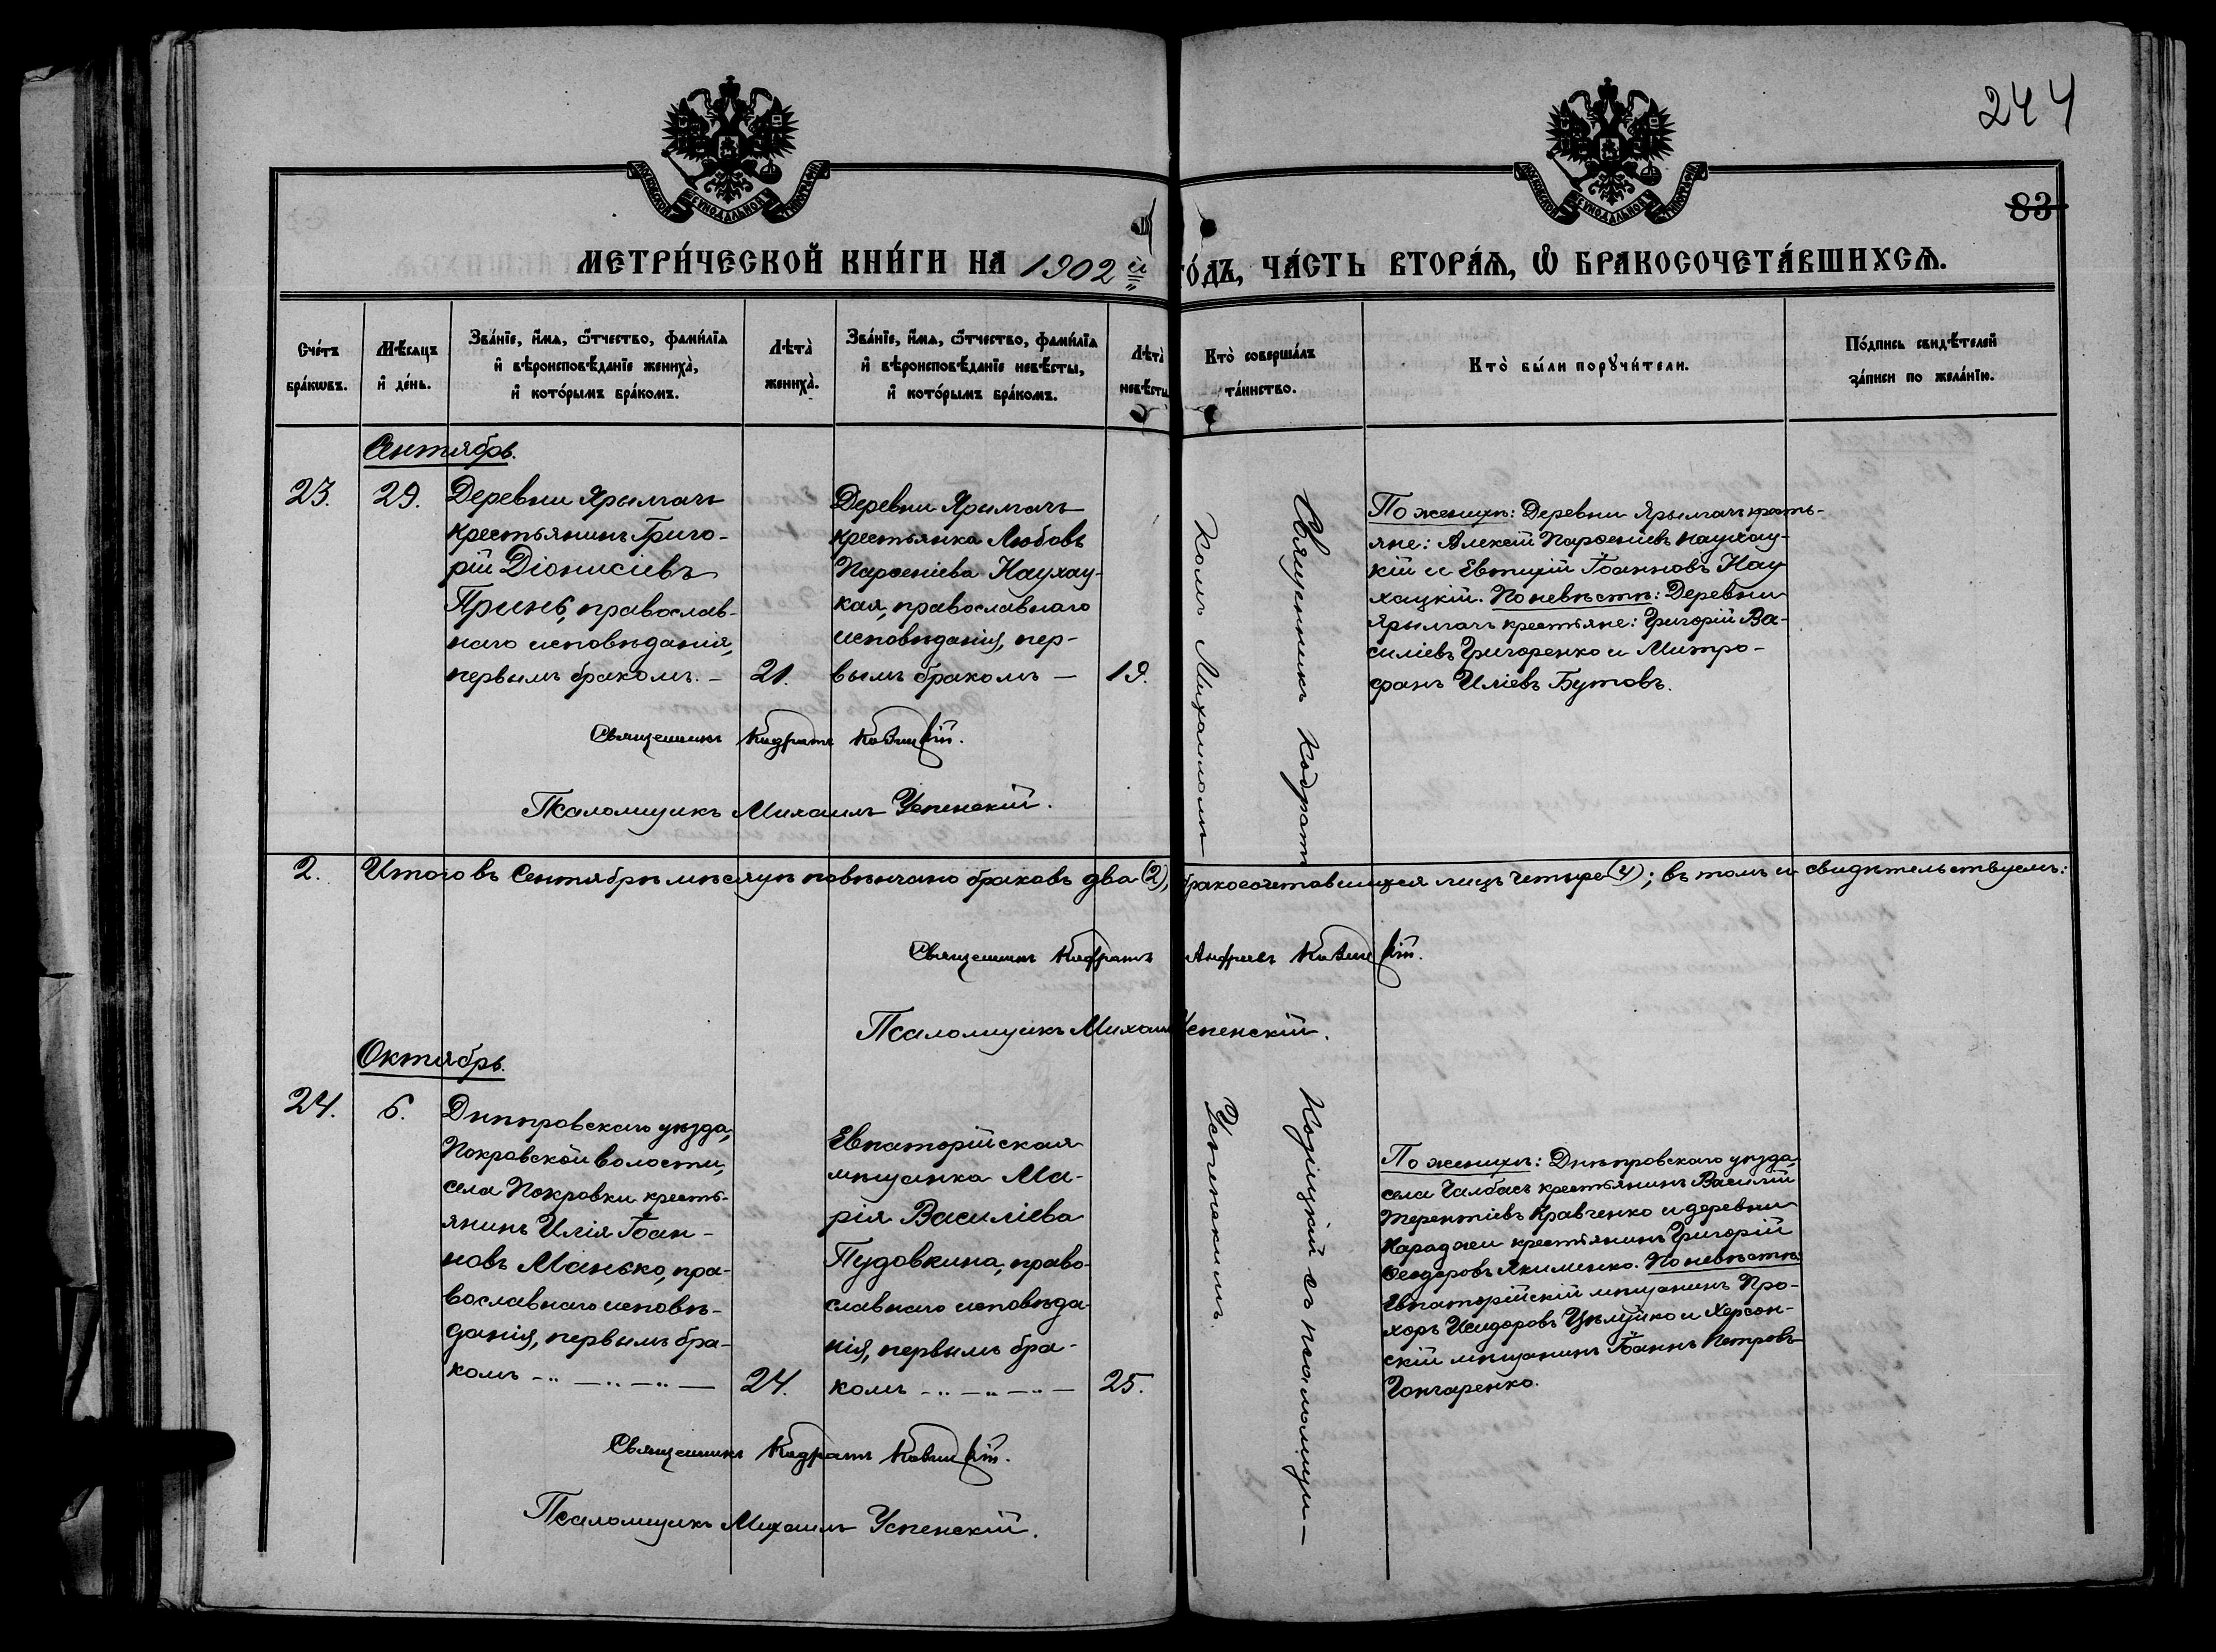 244
83
МОСКОВСКОЙ СѴНОДАЛЬНОЙ ТИПОГРАФІИ
МОСКОВСКОЙ СѴНОДАЛЬНОЙ ТИПОГРАФІИ
МЕТРИ́ЧЕСКОЙ КНИ́ГИ НА 1902 й го́дъ, ЧА́СТЬ ВТОРА́Ѧ, Ѿ БРАКОСОЧЕТА́ВШИХСѦ.
Сче́тъ
бра́кѡвъ.
Мѣ́сяцъ
и҆ де́нь.
Зва́нїе, и҆́мѧ, ѻ҆́тчество, фами́лїѧ
и҆ вѣроисповѣ́данїе жениха̀,
и҆ кото́рымъ бра́комъ.
Лѣта̀
жениха̀.
Зва́нїе, и҆́мѧ, ѻ҆́тчество, фами́лїѧ
и҆ вѣроисповѣ́данїе невѣ́сты,
и҆ кото́рымъ бра́комъ.
Лѣта̀
невѣ́сты
Кто̀ соверша́лъ
та́инство.
Кто̀ бы́ли порꙋчи́тели.
По́дпись свидѣ́телей
за́писи по жела́нїю.
Сентябрь.
23.
29.
Деревни Ярылгачъ
крестьянинъ Григо-
рій Діонисіевъ
Принь, православ-
наго исповѣданія,
первымъ бракомъ. –
21.
Деревни Ярылгачъ
крестьянка Любовь
Парѳеніева Каухау-
кая, православнаго
исповѣданія, пер-
вымъ бракомъ –
19.
Священникъ Кодратъ
комъ Михаиломъ
По женихѣ: Деревни Ярылгачъ кресть-
яне: Алексій Парѳеніевъ Каухау-
кій и Евтихій Іоанновъ Кау
хацкій. По невѣстѣ: Деревни
Ярылгачъ крестьяне: Григорій Ва-
силіевъ Григоренко и Митро-
фанъ Иліевъ Бутовъ.
Священникъ Кодратъ
Псаломщикъ Михаилъ Успенскій.
2.
Итого въ Сентябрѣ мѣсяцѣ повѣнчано браковъ два (2), бракосочетавшихся лицъ четыре (4); въ томъ и свидѣтельствуемъ:
Священникъ Кодратъ Андреевъ
Псаломщикъ Михаилъ Успенскій.
Октябрь.
24.
6.
Днѣпровскаго уѣзда,
Покровской волости,
села Покровки кресть-
янинъ Илія Іоан-
новъ Манько, пра-
вославнаго исповѣ-
данія, первымъ бра-
комъ
24.
Евпаторійская
мѣщанка Ма-
рія Василіева
Пудовкина, право-
славнаго исповѣда
нія, первымъ бра-
комъ
25.
Козіцкій съ псаломщи-
Успенскимъ
По женихѣ: Днѣпровскаго уѣзда,
села Чалбасъ крестьянинъ Василій
Терентіевъ Кравченко и деревни
Караджи крестьянинъ Григорій
Ѳеодоровъ Якименко. По невѣстѣ:
Евпаторійскій мѣщанинъ Про-
хоръ Исидоровъ Цѣлуйко и Херсон-
скій мѣщанинъ Іоаннъ Петровъ
Гончаренко.
Священникъ Кодратъ
Псаломщикъ Михаилъ Успенскій.